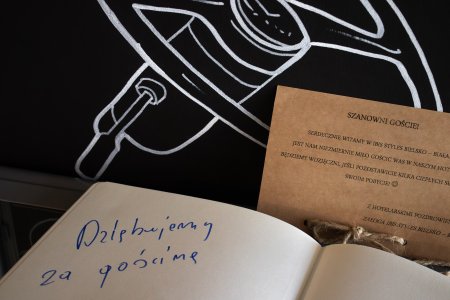 SZANOWNI GOŚCIE!
SERDECZNIE WITAMY W IBIS STYLES BIELSKO – BIAŁA
JEST NAM NIEZMIERNIE MIŁO GOŚCIĆ WAS W NASZYM
BĘDZIEMY WDZIĘCZNI, JEŚLI POZOSTAWICIE KILKA CIEPŁYCH
SWOIM POBYCIE! ☺
Z HOTELARSKIMI
ZAŁOGA IBIS STYLES BIELSKO –
Dziękujemy
za gościnę